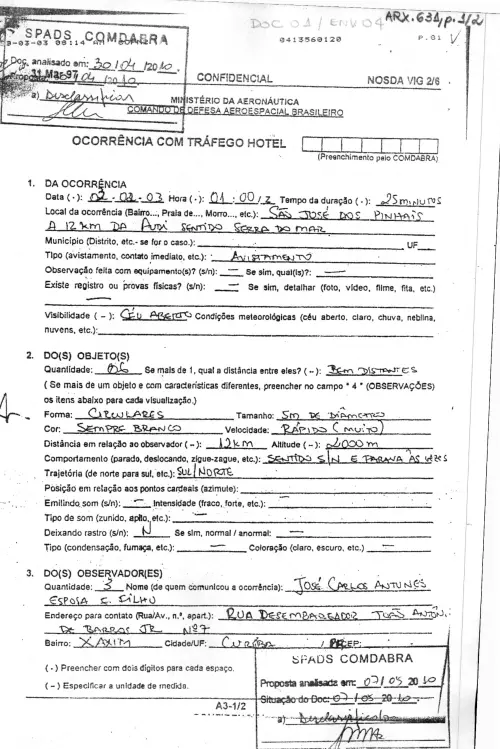 DOC 01 / ENV 04 ARX. 631, p. 1/2
SPADS COMDABRA
0413560120 P.01
Doc. analisado em: 30/04/2010.
31 Mar 97
a) Desclassificar
CONFIDENCIAL NOSDA VIG 2/6
MINISTÉRIO DA AERONÁUTICA
COMANDO DE DEFESA AEROESPACIAL BRASILEIRO
OCORRÊNCIA COM TRÁFEGO HOTEL
(Preenchimento pelo COMDABRA)
1. DA OCORRÊNCIA
Data ( · ): 02 - 03 - 03 Hora ( · ): 01 : 00 / Z Tempo da duração ( - ): 25 minutos
Local da ocorrência (Bairro..., Praia de..., Morro..., etc.): SÃO JOSÉ DOS PINHAIS
A 12 KM DA AUDI SENTIDO SERRA DO MAR
Município (Distrito, etc.- se for o caso.): UF
Tipo (avistamento, contato imediato, etc.): AVISTAMENTO
Observação feita com equipamento(s)? (s/n): — Se sim, qual(is)?: —
Existe registro ou provas físicas? (s/n): — Se sim, detalhar (foto, vídeo, filme, fita, etc.)
—
Visibilidade ( – ): CÉU ABERTO Condições meteorológicas (céu aberto, claro, chuva, neblina,
nuvens, etc.):
2. DO(S) OBJETO(S)
Quantidade: 06 Se mais de 1, qual a distância entre eles? ( – ): BEM DISTANTES
( Se mais de um objeto e com características diferentes, preencher no campo " 4 " (OBSERVAÇÕES)
os itens abaixo para cada visualização.)
Forma: CIRCULARES Tamanho: 5m DE DIÂMETRO
Cor: SEMPRE BRANCO Velocidade: RÁPIDO (MUITO)
Distância em relação ao observador ( – ): 12 km Altitude ( – ): 2000 m
Comportamento (parado, deslocando, zigue-zague, etc.): SENTIDO S/N E PARAVA ÀS VEZES
Trajetória (de norte para sul, etc.): SUL/NORTE
Posição em relação aos pontos cardeais (azimute):
Emitindo som (s/n): — Intensidade (fraco, forte, etc.): —
Tipo de som (zunido, apito, etc.): —
Deixando rastro (s/n): N Se sim, normal / anormal: —
Tipo (condensação, fumaça, etc.): — Coloração (claro, escuro, etc.) —
3. DO(S) OBSERVADOR(ES)
Quantidade: 3 Nome (de quem comunicou a ocorrência): JOSÉ CARLOS ANTUNES
ESPOSA E FILHO
Endereço para contato (Rua/Av., n.º, apart.): RUA DESEMBARGADOR JOÃO ANTÔN.
DE BARROS JR Nº 7
Bairro: XAXIM Cidade/UF: CURIBA / PR CEP:
( · ) Preencher com dois dígitos para cada espaço.
( – ) Especificar a unidade de medida.
A3-1/2
SPADS COMDABRA
Proposta analisada em: 07/05 2010
Situação do Doc: 07/05 2010
a) Desclassificado